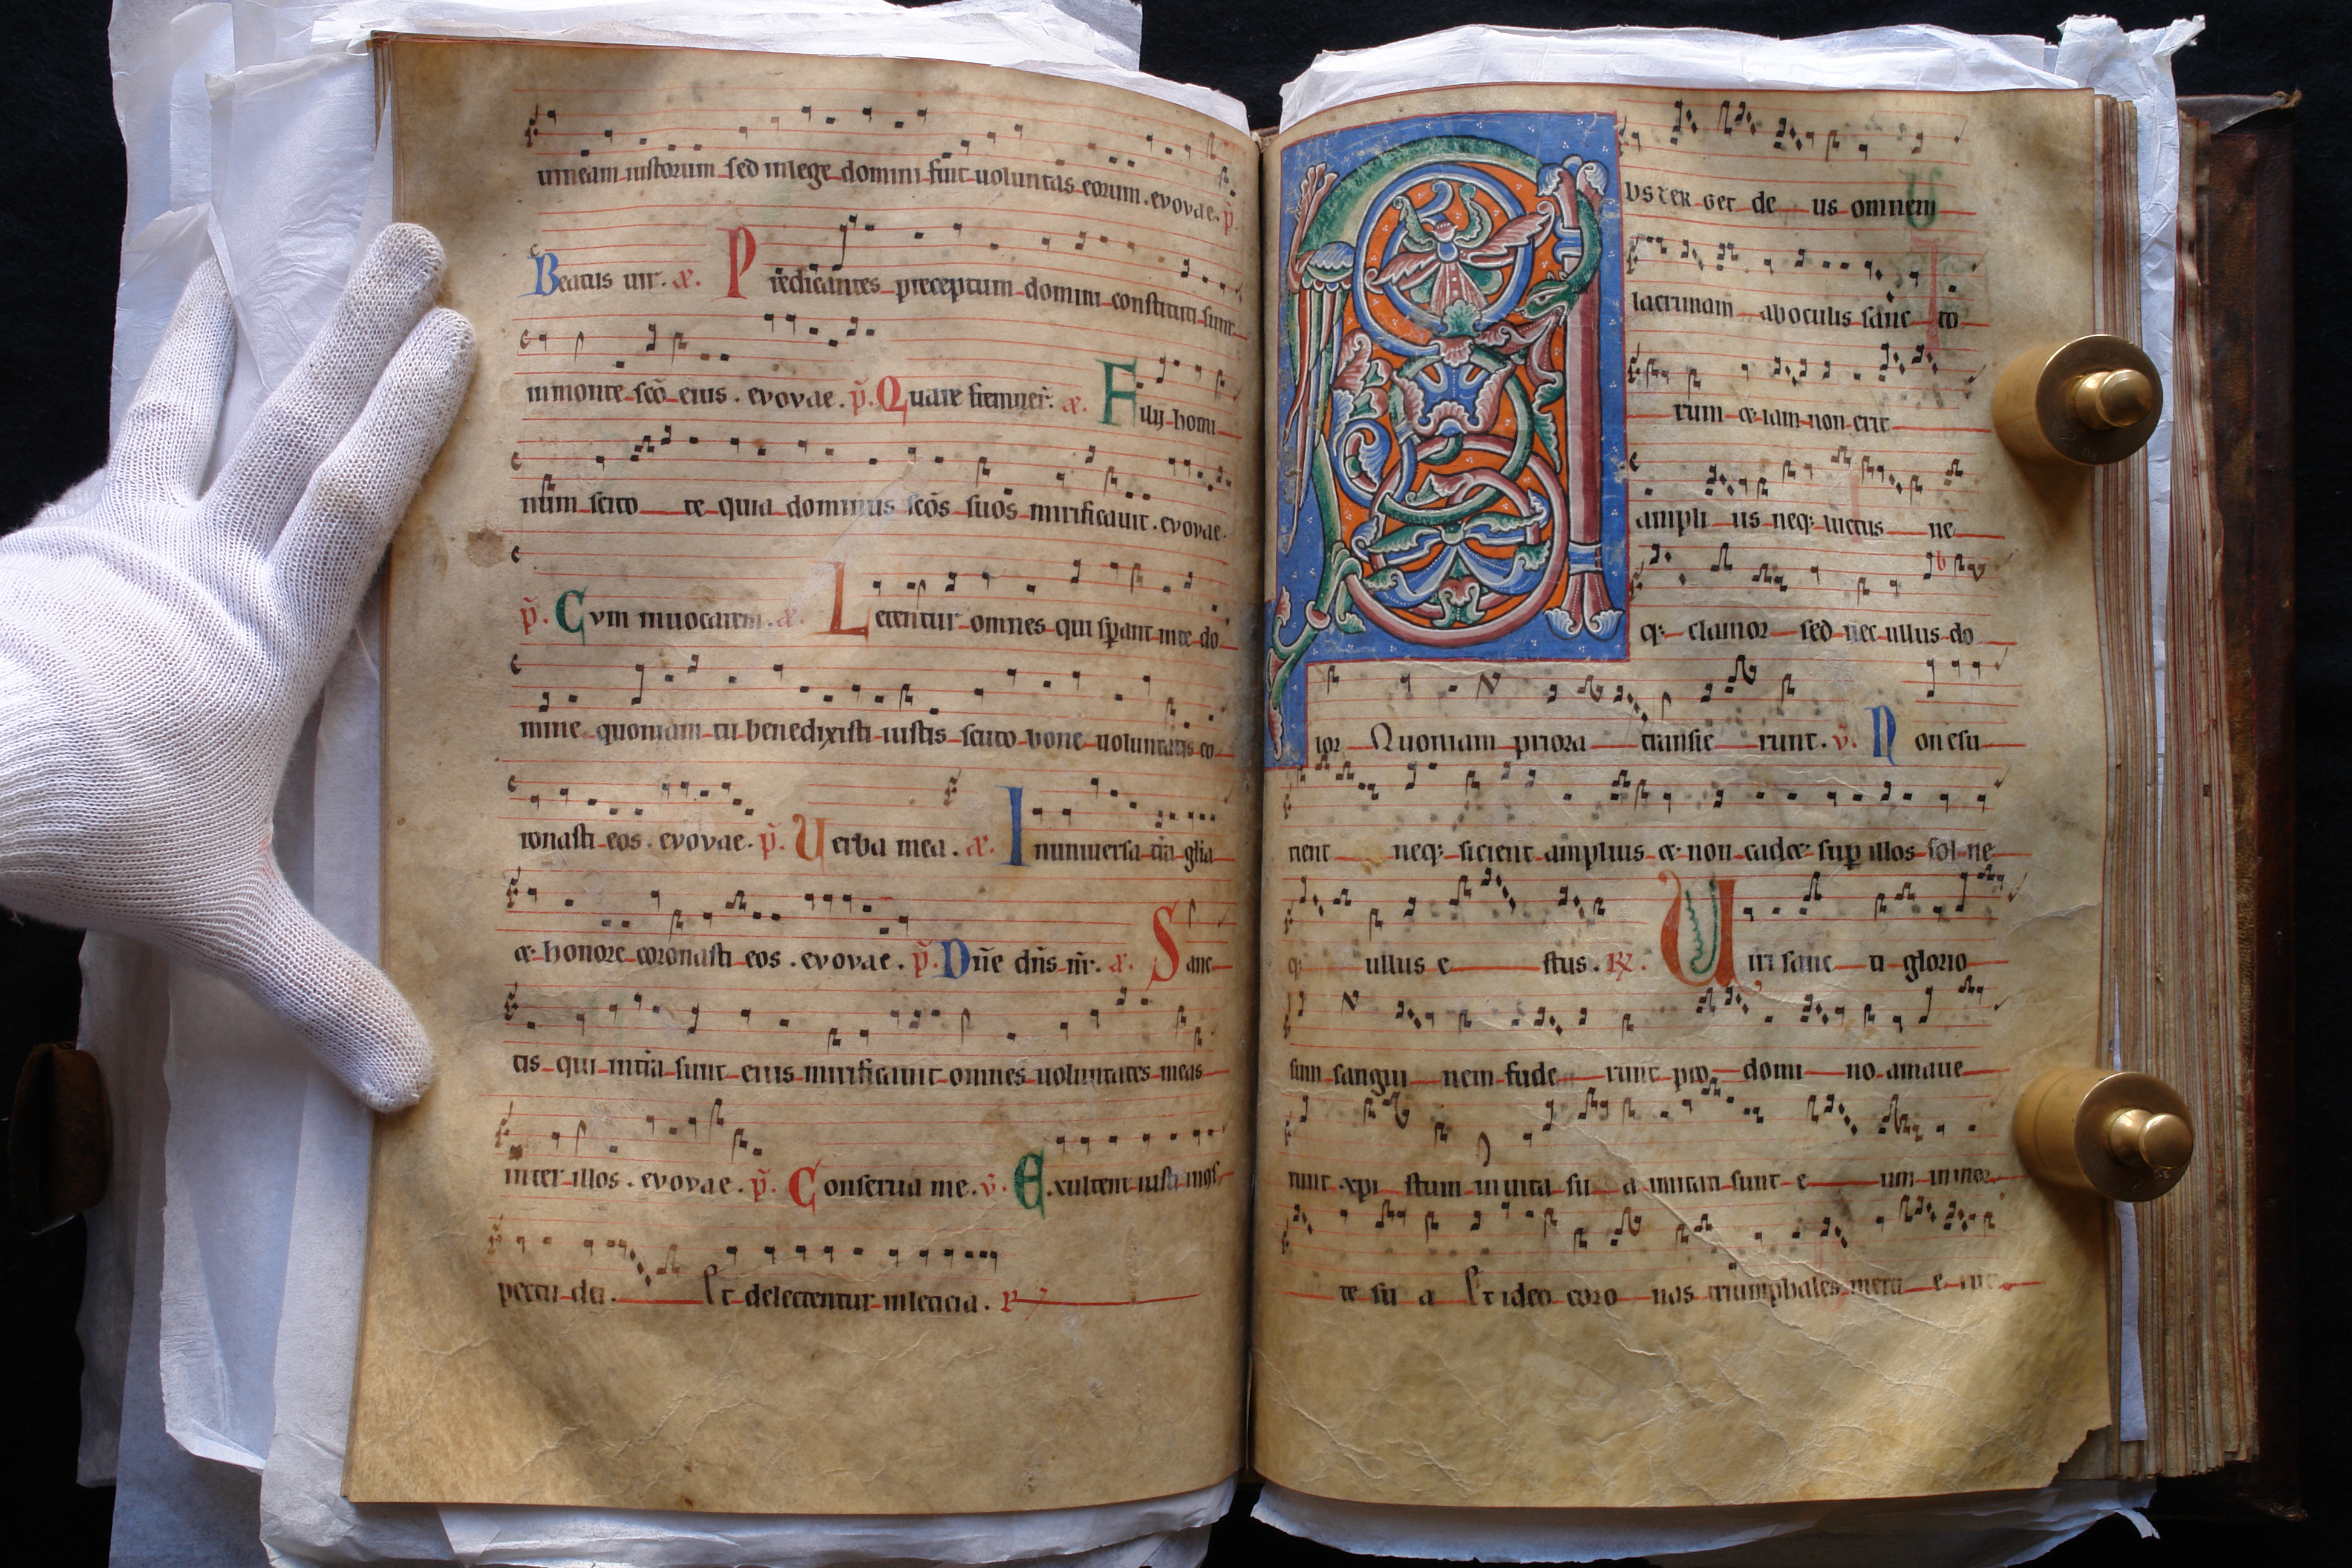 uineam iustorum sed in lege domini fuit uoluntas eorum. evovae. p̃.
Beatus uir. æ. Predicantes preceptum domini constituti sunt
in monte scō eius. evovae. p̃. Quare fremuer̃. æ. Filij homi
num scito te quia dominus scōs suōs mirificauit. evovae.
p̃. Cvm inuocarem. æ. Letentur omnes qui sp̄ant in te do
mine quoniam tu benedixisti iustis scuto bone uoluntatis co
ronasti eos. evovae. p̃. Uerba mea. æ. In uniuersa tr̄a gl̄ia
& honore coronasti eos. evovae. p̃. Dñe dñs ñr. æ. Sanc
tis qui in tr̄a sunt eius mirificauit omnes uoluntates meas
inter illos. evovae. p̃. Conserua me. v. Exultent iusti in cōs
pectu dei. Et delectentur in leticia. ℟
Abster get de us omnem
lacrimam ab oculis sanc to
rum & iam non erit
ampli us neq; luctus ne
q; clamor sed nec ullus do
lor Quoniam priora transie runt. v. Non esu
rient neq; sicient amplius & non cadet sup illos sol ne
q; ullus e stus. ℟. Uiri sanc ti glorio
sum sangui nem fude runt pro domi no amaue
runt xp̄i stum in uita su a imitati sunt e um in mor
te su a Et ideo coro nas triumphales meru e runt